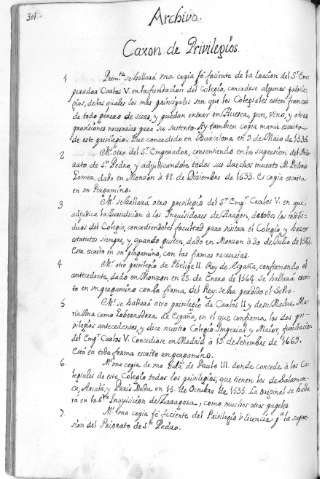 Archivo.
Caxon de Privilegios.
1 Primte. se hallará una copia fé faciente de la
perador Carlos V. en la fundacion del Colegio, concedese algunos privile-
gios, de los quales los mas principales son que los Colegiales esten francos
de todo genero de sisas, y puedan entrar en Huesca, pan, vino, y otras
provisiones necesarias para su sustento. Ay tambien copia
de este privilegio. Fue concedido en Barcelona en de Maio de 1535
2 Ytt. otro del Sr. Emperador, consintiendo en la supresion del Prio-
rato de Sn. Pedro, y adjudicandolos todos sus drechos muerto Mn. Pedro
dado en Monzon á 11 de Diciembre de 1533. Es copia escrita
en un Pergamino.
3 Ytt. se hallará otro privilegio del Sr. Empr. Carlos V. en que
á los Inquisidores de Aragon,
del Colegio, concediendoles facultad para visitar el Colegio, y hacer
siempre, y quando quisieren, dado en Monzon á 20 de Julio de
Esta escrito en pergamino, con las firmas necesarias.
4 Ytt. otro privilegio de Phelipe II. Rey de España, confirmando el
antecedente, dado en Monzon en 15 de Enero de 1564. se hallará escri-
to en pergamino con la firma del Rey. se ha perdido el sello.
5 Ytt. se hallará otro privilegio de Carlos II y de su Madre Ma-
riana como Gobernadora de España, en el que confirma los dos pri-
vilegios antecedentes, y dice nuestro Colegio Imperial y Maior, fundacion
del Empr. Carlos V. Concediose en Madrid á 15 de Setiembre de 1669.
Está en toda forma escrito en pergamino.
6 Ytt. una copia de una Bula de Paulo III. donde concede á los Co-
legiales de este Colegio todos los privilegios, que tienen los de Salaman-
ca, Alcalá, y Paris. Data. en 15 de Octubre de 1535. La original se halla-
rá en la Sta. Inquisicion de Zaragoza, como muchos otros papeles.
7 Ytt. una copia fé faciente del Privilegio ó licencia pa. la supre-
sion del Priorato de Sn. Pedro.